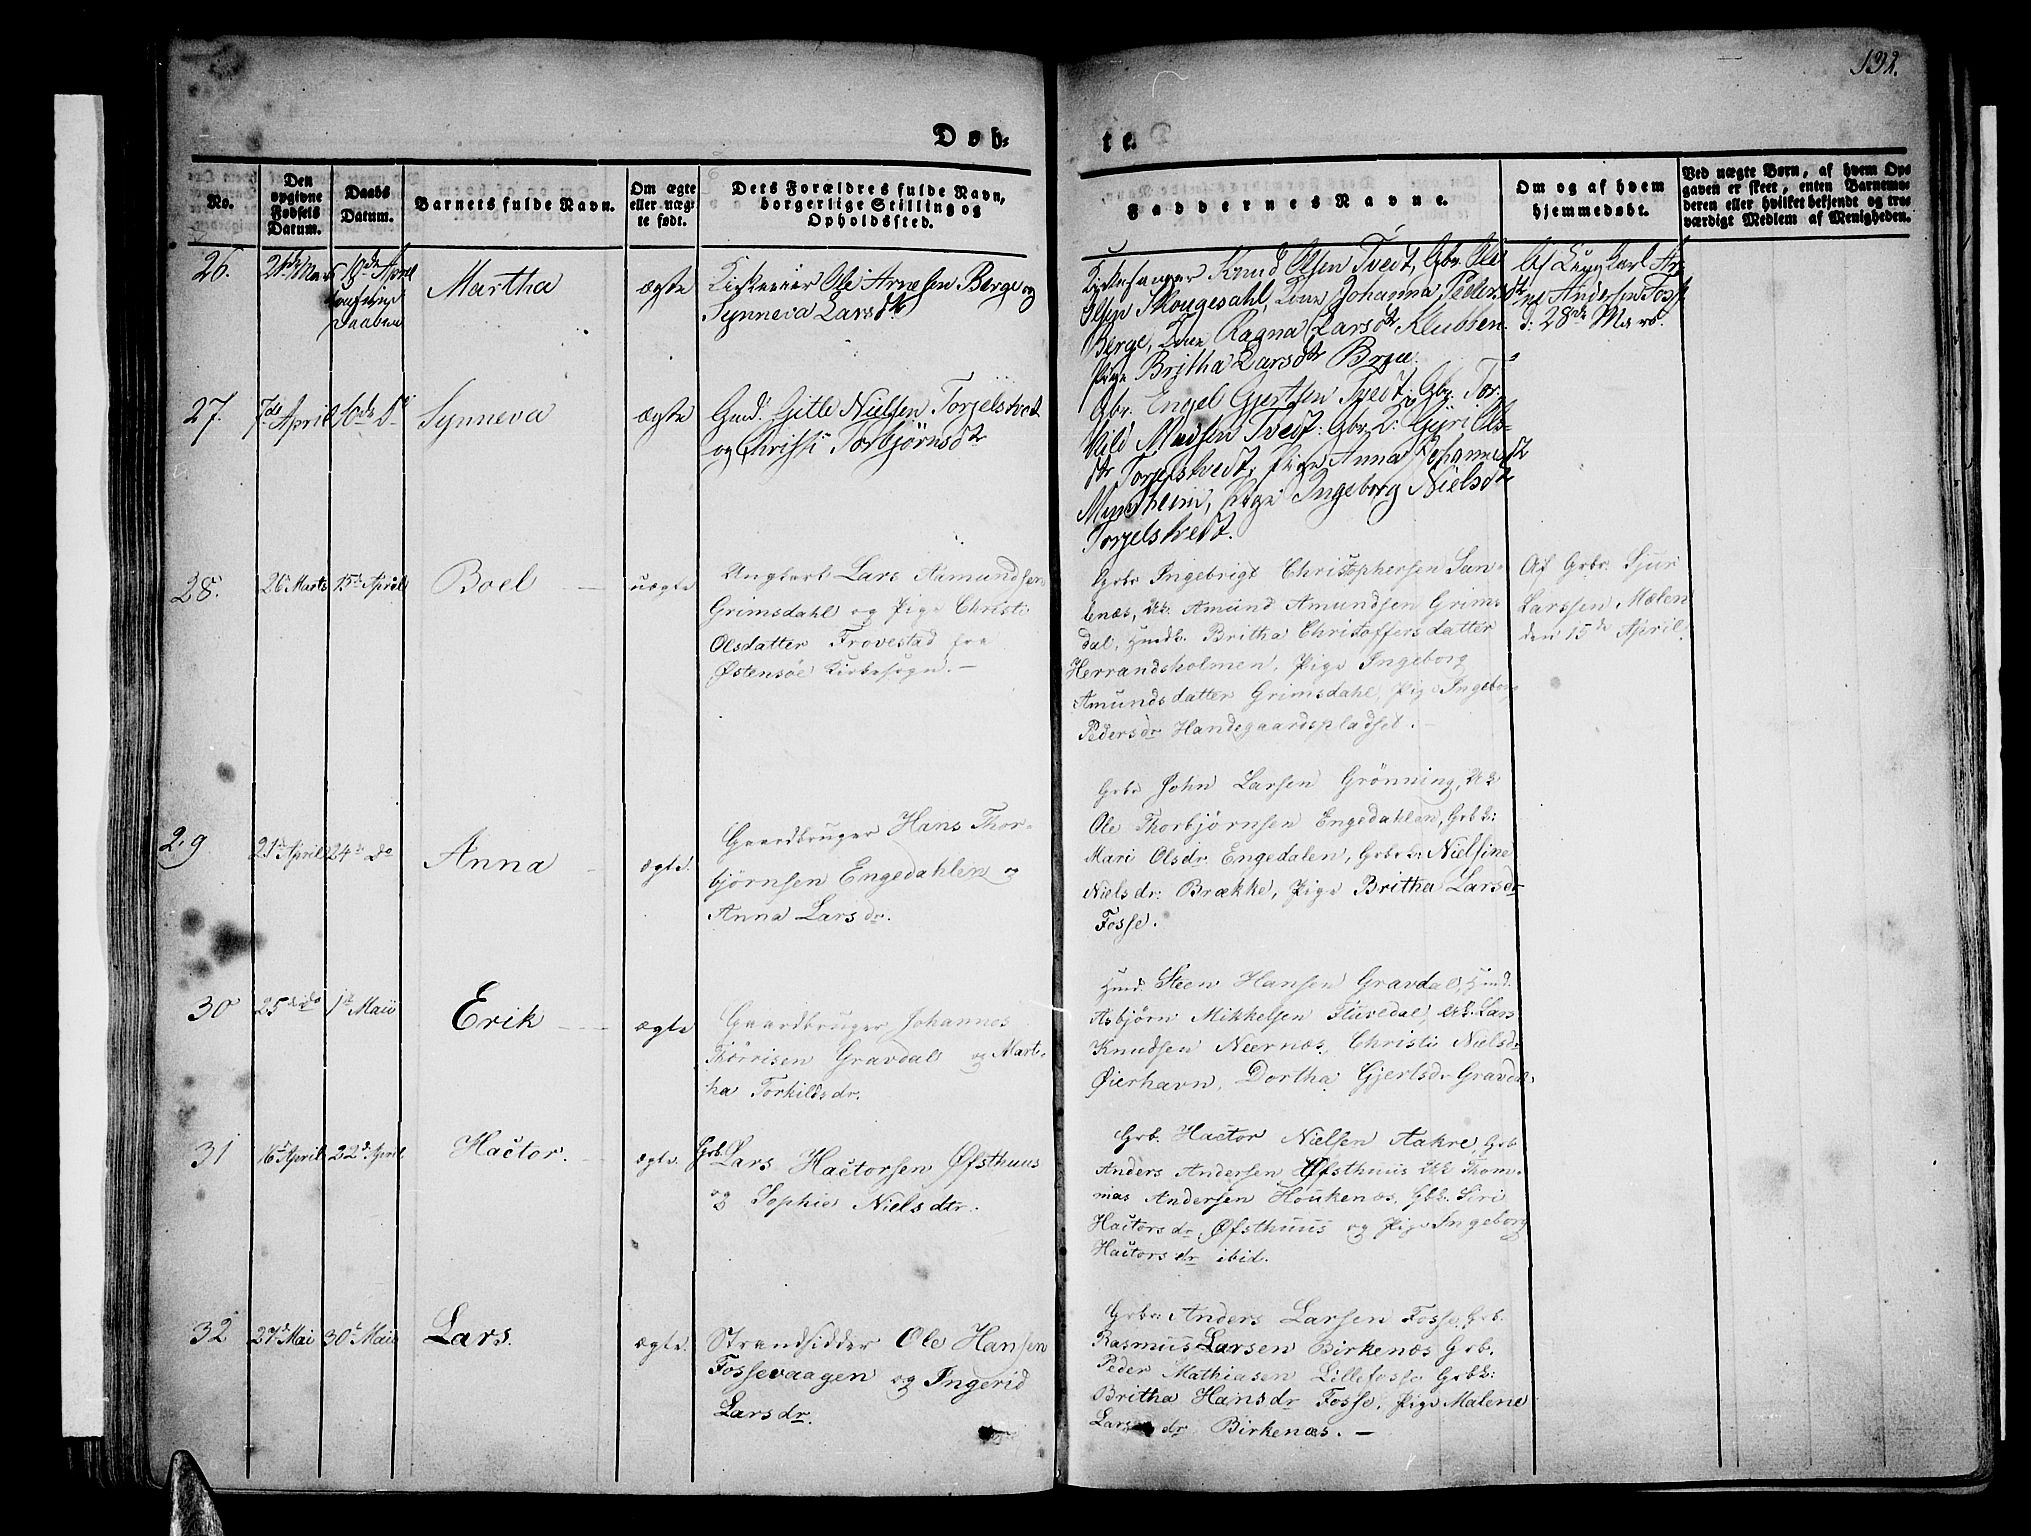 132.
Døb-
te.
No.
Den opgivne Fødsels Datum.
Daabs Datum.
Barnets fulde Navn.
Om ægte eller uægte født.
Dets Forældres fulde Navn, borgerlige Stilling og Opholdssted.
Faddernes Navne.
Om og af hvem hjemmedøbt.
Ved uægte Børn, af hvem Opgaven er skeet, enten Barnemoderen eller hvilket bekjendt og troværdigt Medlem af Menigheden.
26.
Martha
ægte
Ole Arnesen Berge og
Synneva Larsdtr
Kirkesanger Knud Olsen Tvedt, Gbr. Ole
Olsen Skougesahl, Kone Johanna Pedersdtr
Berge, Kone Ragna Larsdtr Klubben.
Pige Britha Larsdtr Berge.
Af Ungkarl
Andersen Fosse
d: 28de Marts.
27.
7de April 10de Do
Synneva
ægte
Gmd. Gitle Nielsen Torjelstvedt
og Christi Torbjørnsdtr
Gbr. Engel Gjertsen Tvedt, Gbr. Tor-
kild Madsen Tvedt: Gbr.K: Gyri Ols-
dtr Torjelstvedt, Pige Anna Johannesdtr
Mundheim, Pige Ingeborg Nielsdtr
Torjelstvedt.
28.
26 Marts 15de April
Boel
uægte
Ungkarl Lars Aamundsen
Grimsdahl og Pige Christi
Olsdatter Trovestad fra
Østensøe Kirkesogn. -
Grbr Ingebrigt Christophersen San-
denæs, Uk. Amund Amundsen Grims
dal, Huusk. Britha Christoffersdatter
Herrandsholmen, Pige Ingeborg
Amundsdatter Grimsdahl, Pige Ingeborg
Pedersdr Handegaardspladset. -
Af Grbr. Sjur
Larssen Mælen
den 15de April.
29
21de April 24de Do
Anna
ægte.
Gaardbruger Hans Thor-
bjørnsen Engedahlen og
Anna Larsdr.
Grbr John Larsen Grønning, Uk
Ole Thorbjørnsen Engedahlen, Grbk:
Mari Olsdr. Engedalen, Grbrk: Nielsine
Nielsdr: Brække, Pige Britha Larsdr
Fosse.
30
25de do 1te Maii
Erik
ægte
Gaardbruger Johannes
Thorrisen Gravdal og Mart-
ha Torkildsdr.
Huusmd. Steen Hansen Gravdal, Huusmd.
Asbjørn Mikkelsen Fluvedal, Uk. Lars
Knudsen Neernæs, Christi Nielsdr
Øierhavn, Dortha Gjertsdr Gravdal
31
16de April 22de April
Hactor.
ægte.
Grb. Lars Hactorsen Øfsthuus
og Sophie Nielsdtr.
Grb. Hactor Nielsen Aakre, Grb
Anders Andersen Øfsthuus Uk Thom-
mas Andersen Houkenæs, Gbk. Siri
Hactorsdr Øfsthuus og Pige Ingeborg
Hactorsdr ibid.
32
27de Mai 30te Mai
Lars.
ægte.
Strandsidder Ole Hansen
Fossevaagen og Ingerid
Larsdr.
Grbr: Anders Larsen Fosse, Grb.
Rasmus Larsen Birkenæs Grb.
Peder Mathiasen Lillefosse Grbk:
Britha Hansdr Fosse, Pige Malene
Larsdr Birkenæs. -